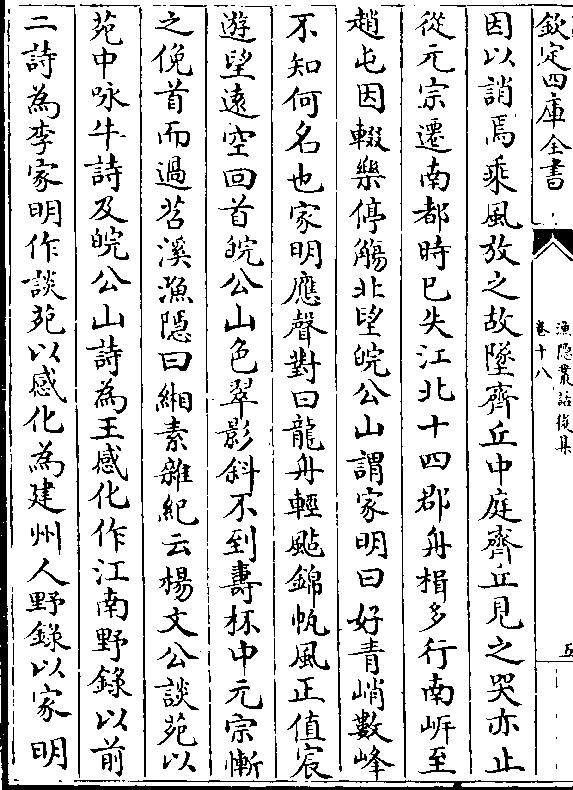 欽定四庫全書
漁隱叢話後集
卷十八
五
因以誚焉乘風放之故墜齊丘中庭齊丘見之哭亦止
從元宗遷南都時已失江北十四郡舟楫多行南岍至
趙屯因輟樂停觴北望皖公山謂家明曰好青峭數峰
不知何名也家明應聲對曰龍舟輕颭錦帆風正值宸
遊望遠空回首皖公山色翠影斜不到壽杯中元宗慚
之俛首而過苕溪漁隱曰緗素雜紀云楊文公談苑以
苑中咏牛詩及皖公山詩為王感化作江南野錄以前
二詩為李家明作談苑以感化為建州人野錄以家明